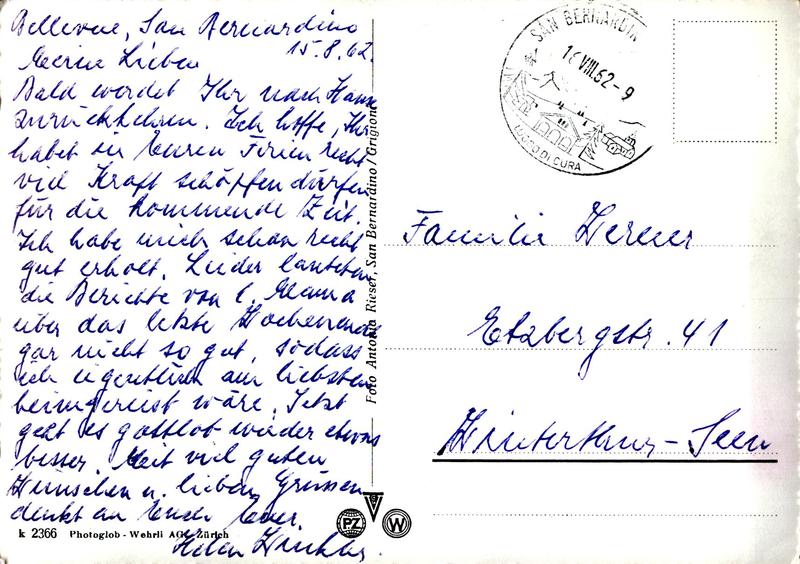 Bellevue, San Bernardino
15.8.62.
Meine Lieben
Bald werdet Ihr nach Hause
zurückkehren. Ich hoffe, Ihr
habet in Euren Ferien recht
viel Kraft schöpfen dürfen
für die kommende Zeit.
Ich habe mich schon recht
gut erholt. Leider lauteten
die Berichte von l. Mama
über das letzte Wochenende
gar nicht so gut, sodass
ich eigentlich am liebsten
heimgereist wäre. Jetzt
geht es gottlob wieder etwas
besser. Mit viel guten
Wünschen u. lieben Grüssen
denkt an Euch Eure
Helen Winkler.
k 2366 Photoglob-Wehrli AG., Zürich
Foto Antonia Rieser, San Bernardino / Grigione
PZ
W
SAN BERNARDIN
16 VIII.62-9
LUOGO DI CURA
Familie Werner
Etzbergstr. 41
Winterthur-Seen